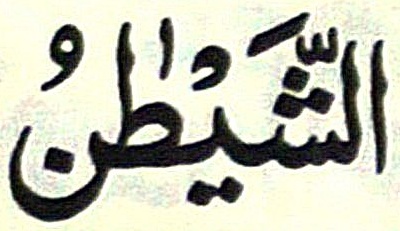 الشَّيْطٰنُ